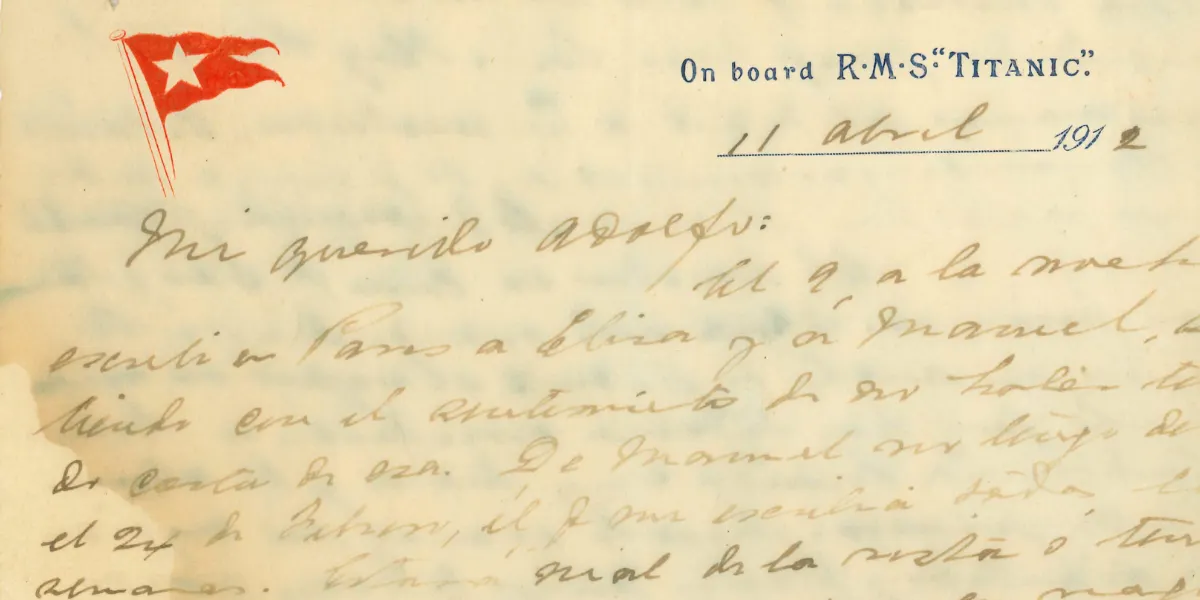 On board R·M·S. "TITANIC".
11 abril 1912
Mi querido Adolfo:
El 9, a la noche
escribí en Paris a Elisa y á Manuel,
con el sentimiento de no haber
de carta de esa. De Manuel no tengo
el 24 de Febrero, él q me escribia
semanas. mal de la vista ó